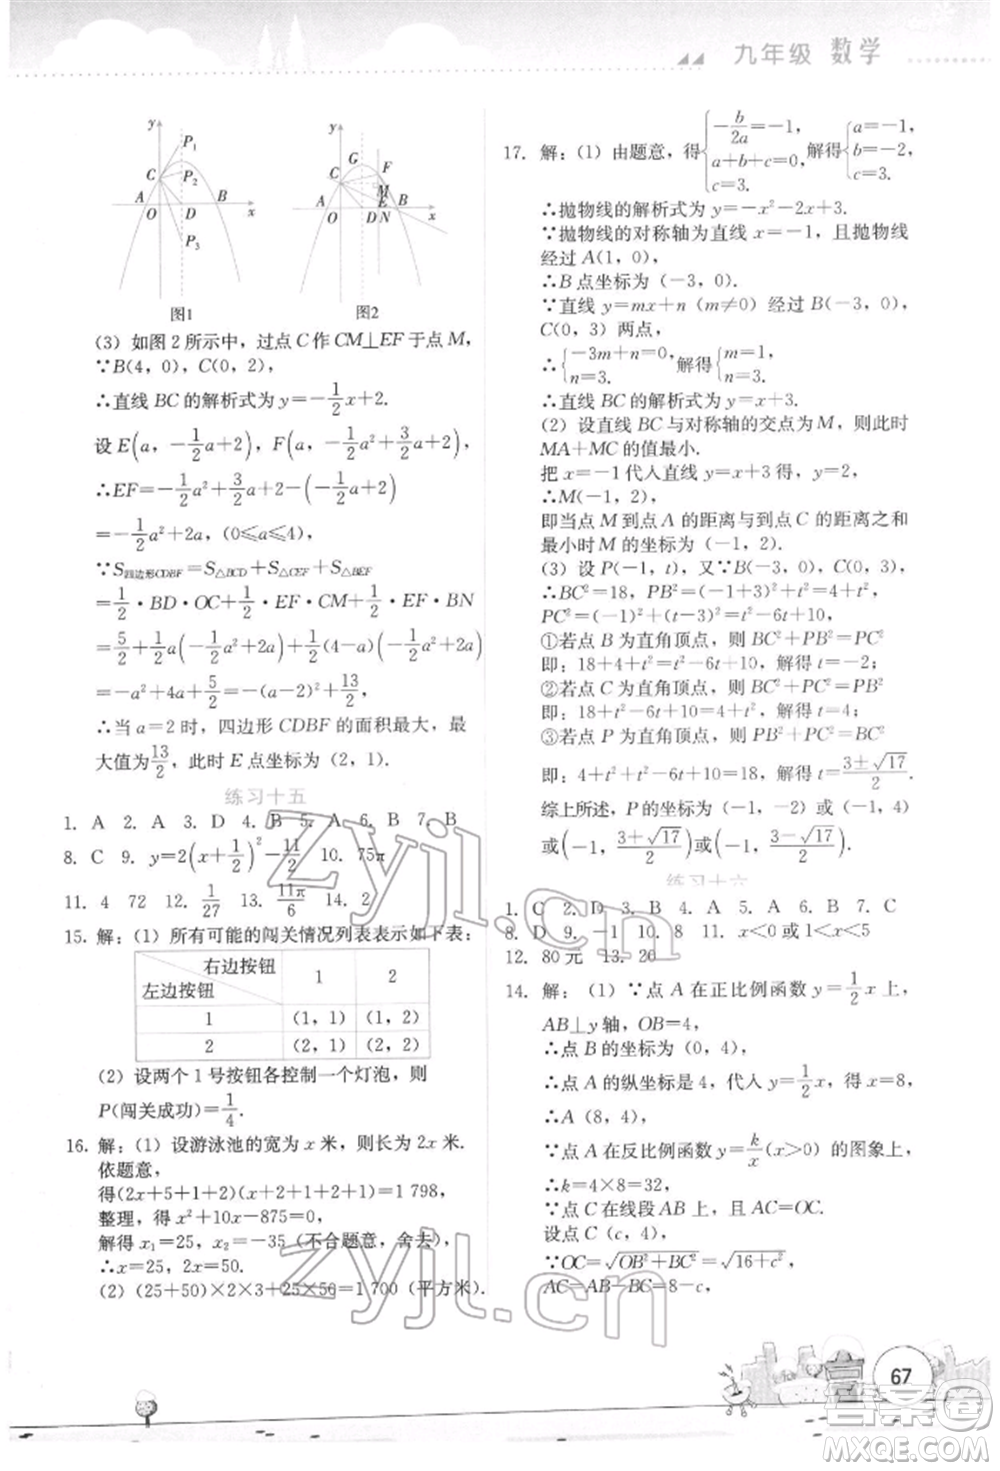 九年级 数学
y
P₁
C
P₂
A
B
O
D
x
P₃
图1
y
G
F
C
M
A
E
B
O
D
N
x
图2
(3) 如图 2 所示中，过点 C 作 CM⊥EF 于点 M，
∵B(4，0)，C(0，2)，
∴直线 BC 的解析式为 y=-1/2x+2.
设 E(a，-1/2a+2)，F(a，-1/2a²+3/2a+2)，
∴EF=-1/2a²+3/2a+2-(-1/2a+2)
=-1/2a²+2a，(0≤a≤4)，
∵S四边形CDBF=S△BCD+S△CEF+S△BEF
=1/2·BD·OC+1/2·EF·CM+1/2·EF·BN
=5/2+1/2a(-1/2a²+2a)+1/2(4-a)(-1/2a²+2a)
=-a²+4a+5/2=-(a-2)²+13/2，
∴当 a=2 时，四边形 CDBF 的面积最大，最
大值为13/2，此时 E 点坐标为（2，1）.
练习十五
1. A 2. A 3. D 4. B 5. A 6. B 7. B
8. C 9. y=2(x+1/2)²-11/2 10. 75π
11. 4 72 12. 1/27 13. 11π/6 14. 2
15. 解：(1) 所有可能的闯关情况列表表示如下表：
右边按钮 1 2
左边按钮
1 (1，1) (1，2)
2 (2，1) (2，2)
(2) 设两个 1 号按钮各控制一个灯泡，则
P(闯关成功)=1/4.
16. 解：(1) 设游泳池的宽为 x 米，则长为 2x 米.
依题意，
得(2x+5+1+2)(x+2+2+1+1)=1 798，
整理，得 x²+10x-875=0，
解得 x₁=25，x₂=-35（不合题意，舍去），
∴x=25，2x=50.
(2)（25+50)×2×3+25×50=1 700（平方米）.
17. 解：(1) 由题意，得{-b/2a=-1，a+b+c=0，c=3. 解得{a=-1，b=-2，c=3.
∴抛物线的解析式为 y=-x²-2x+3.
∵抛物线的对称轴为直线 x=-1，且抛物线
经过 A(1，0)，
∴B 点坐标为（-3，0）.
∵直线 y=mx+n（m≠0）经过 B(-3，0)，
C(0，3) 两点，
∴{-3m+n=0，n=3. 解得{m=1，n=3.
∴直线的解析式为 y=x+3.
(2) 设直线 BC 与对称轴的交点为 M，则此时
MA+MC 的值最小.
把 x=-1 代人直线 y=x+3 得，y=2，
∴M(-1，2)，
即当点 M 到点 A 的距离与到点 C 的距离之和
最小时 M 的坐标为（-1，2）.
(3) 设 P(-1，t)，又∵B(-3，0)，C(0，3)，
∴BC²=18，PB²=(-1+3)²+t²=4+t²，
PC²=(-1)²+(t-3)²=t²-6t+10，
①若点 B 为直角顶点，则 BC²+PB²=PC²
即：18+4+t²=t²-6t+10，解得 t=-2；
②若点 C 为直角顶点，则 BC²+PC²=PB²
即：18+t²-6t+10=4+t²，解得 t=4；
③若点 P 为直角顶点，则 PB²+PC²=BC²
即：4+t²+t²-6t+10=18，解得 t=3±√17/2.
综上所述，P 的坐标为（-1，-2）或（-1，4）
或(-1，3+√17/2)或(-1，3-√17/2).
练习十六
1. C 2. D 3. B 4. A 5. A 6. B 7. C
8. D 9. -1 10. 8 11. x<0 或 1<x<5
12. 80 元 13. 20
14. 解：(1) ∵点 A 在正比例函数 y=1/2x 上，
AB⊥y 轴，OB=4，
∴点 B 的坐标为（0，4），
∴点 A 的纵坐标是 4，代人 y=1/2x，得 x=8，
∴A（8，4），
∵点 A 在反比例函数 y=k/x(x>0) 的图象上，
∴k=4×8=32，
∵点 C 在线段 AB 上，且 AC=OC.
设点 C（c，4），
∵OC=√OB²+BC²=√16+c²，
AC=AB-BC=8-c，
67
zyjl.cn
zyjl.cn
答案圈
MXQE.COM